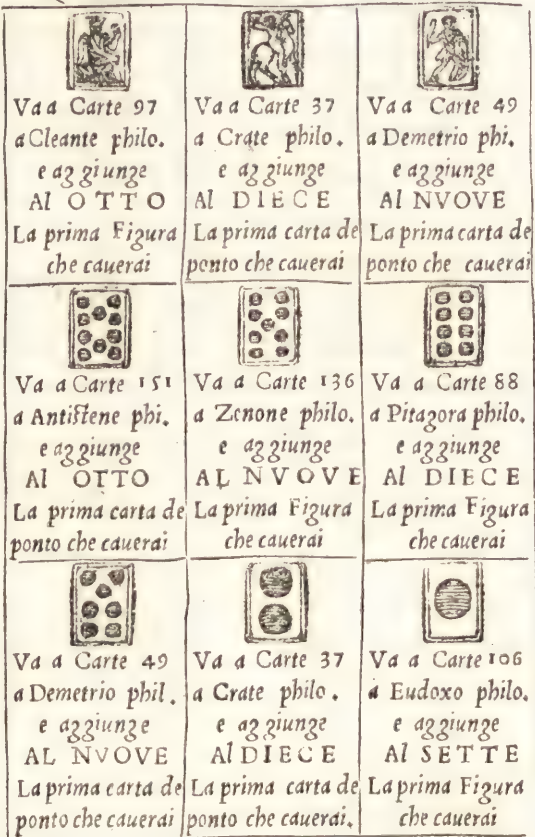 Va a Carte 97
a Cleante philo.
e aggiunge
Al OTTO
La prima Figura
che cauerai
Va a Carte 37
a Crate philo.
e aggiunge
Al DIECE
La prima carta de
ponto che cauerai
Va a Carte 49
a Demetrio phi.
e aggiunge
Al NVOVE
La prima carta de
ponto che cauerai
Va a Carte 151
a Antistene phi.
e aggiunge
Al OTTO
La prima carta de
ponto che cauerai
Va a Carte 136
a Zenone philo.
e aggiunge
AL NVOVE
La prima Figura
che cauerai
Va a Carte 88
a Pitagora philo.
e aggiunge
Al DIECE
La prima Figura
che cauerai
Va a Carte 49
a Demetrio phil.
e aggiunge
AL NVOVE
La prima carta de
ponto che cauerai
Va a Carte 37
a Crate philo.
e aggiunge
Al DIECE
La prima carta de
ponto che cauerai.
Va a Carte 106
a Eudoxo philo.
e aggiunge
Al SETTE
La prima Figura
che cauerai